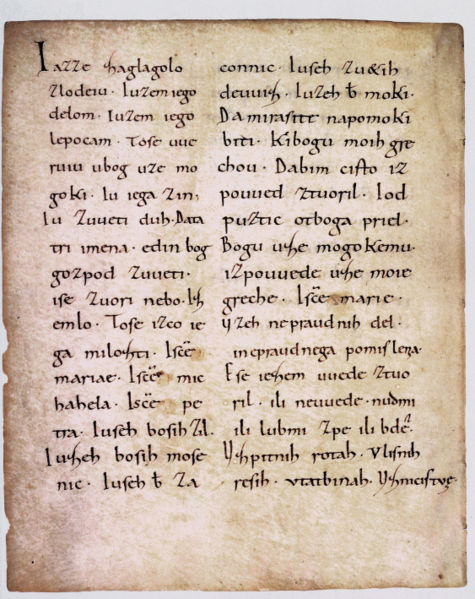 Iazze zaglagolo
zlodeiu · Iuzem iego
delom · Iuzem iego
lepocam · Tose uue
ruiu ubog uze mo
goKi · Iu iega Zin,
Iu Zuueti duh · Data
tri imena · edin bog
gozpod Zuueti ·
ise zuori nebo · Izh
emlo · Tose izco ie
ga milozhti · Iscẽ
mariae · Iscẽ mic
hahela · Iscẽ pe
tra · Iuseh bosih Zil ·
Iuzheh bosih mose
nic · Iuseh ƀ Za
connic · Iuseh Zu&ih
deuuiz · Iuzeh ƀ moKi ·
Da mirasite napomoKi
biti · Kibogu moih gre
chou · Dabim cisto iz
pouued Ztuoril · Iod
puztic otboga priel ·
Bogu uzhe mogoKemu ·
izpouuede uzhe moie
greche · Iscẽ marie ·
Vzeh nepraudnih del ·
inepraudnega pomislena ·
Ese iezem uuede Ztuo
ril · ili neuuede · nudmi
ili lubmi Zpe ili bde ·
Vzhpitnih rotah · Vlisnih
resih · vtatbinah · Vznicistve ·